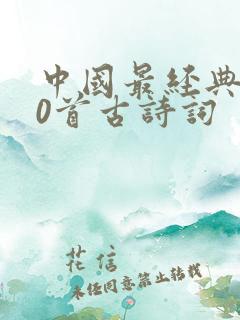 中國最經典
0首古詩詞
花信
未经同意禁止转载